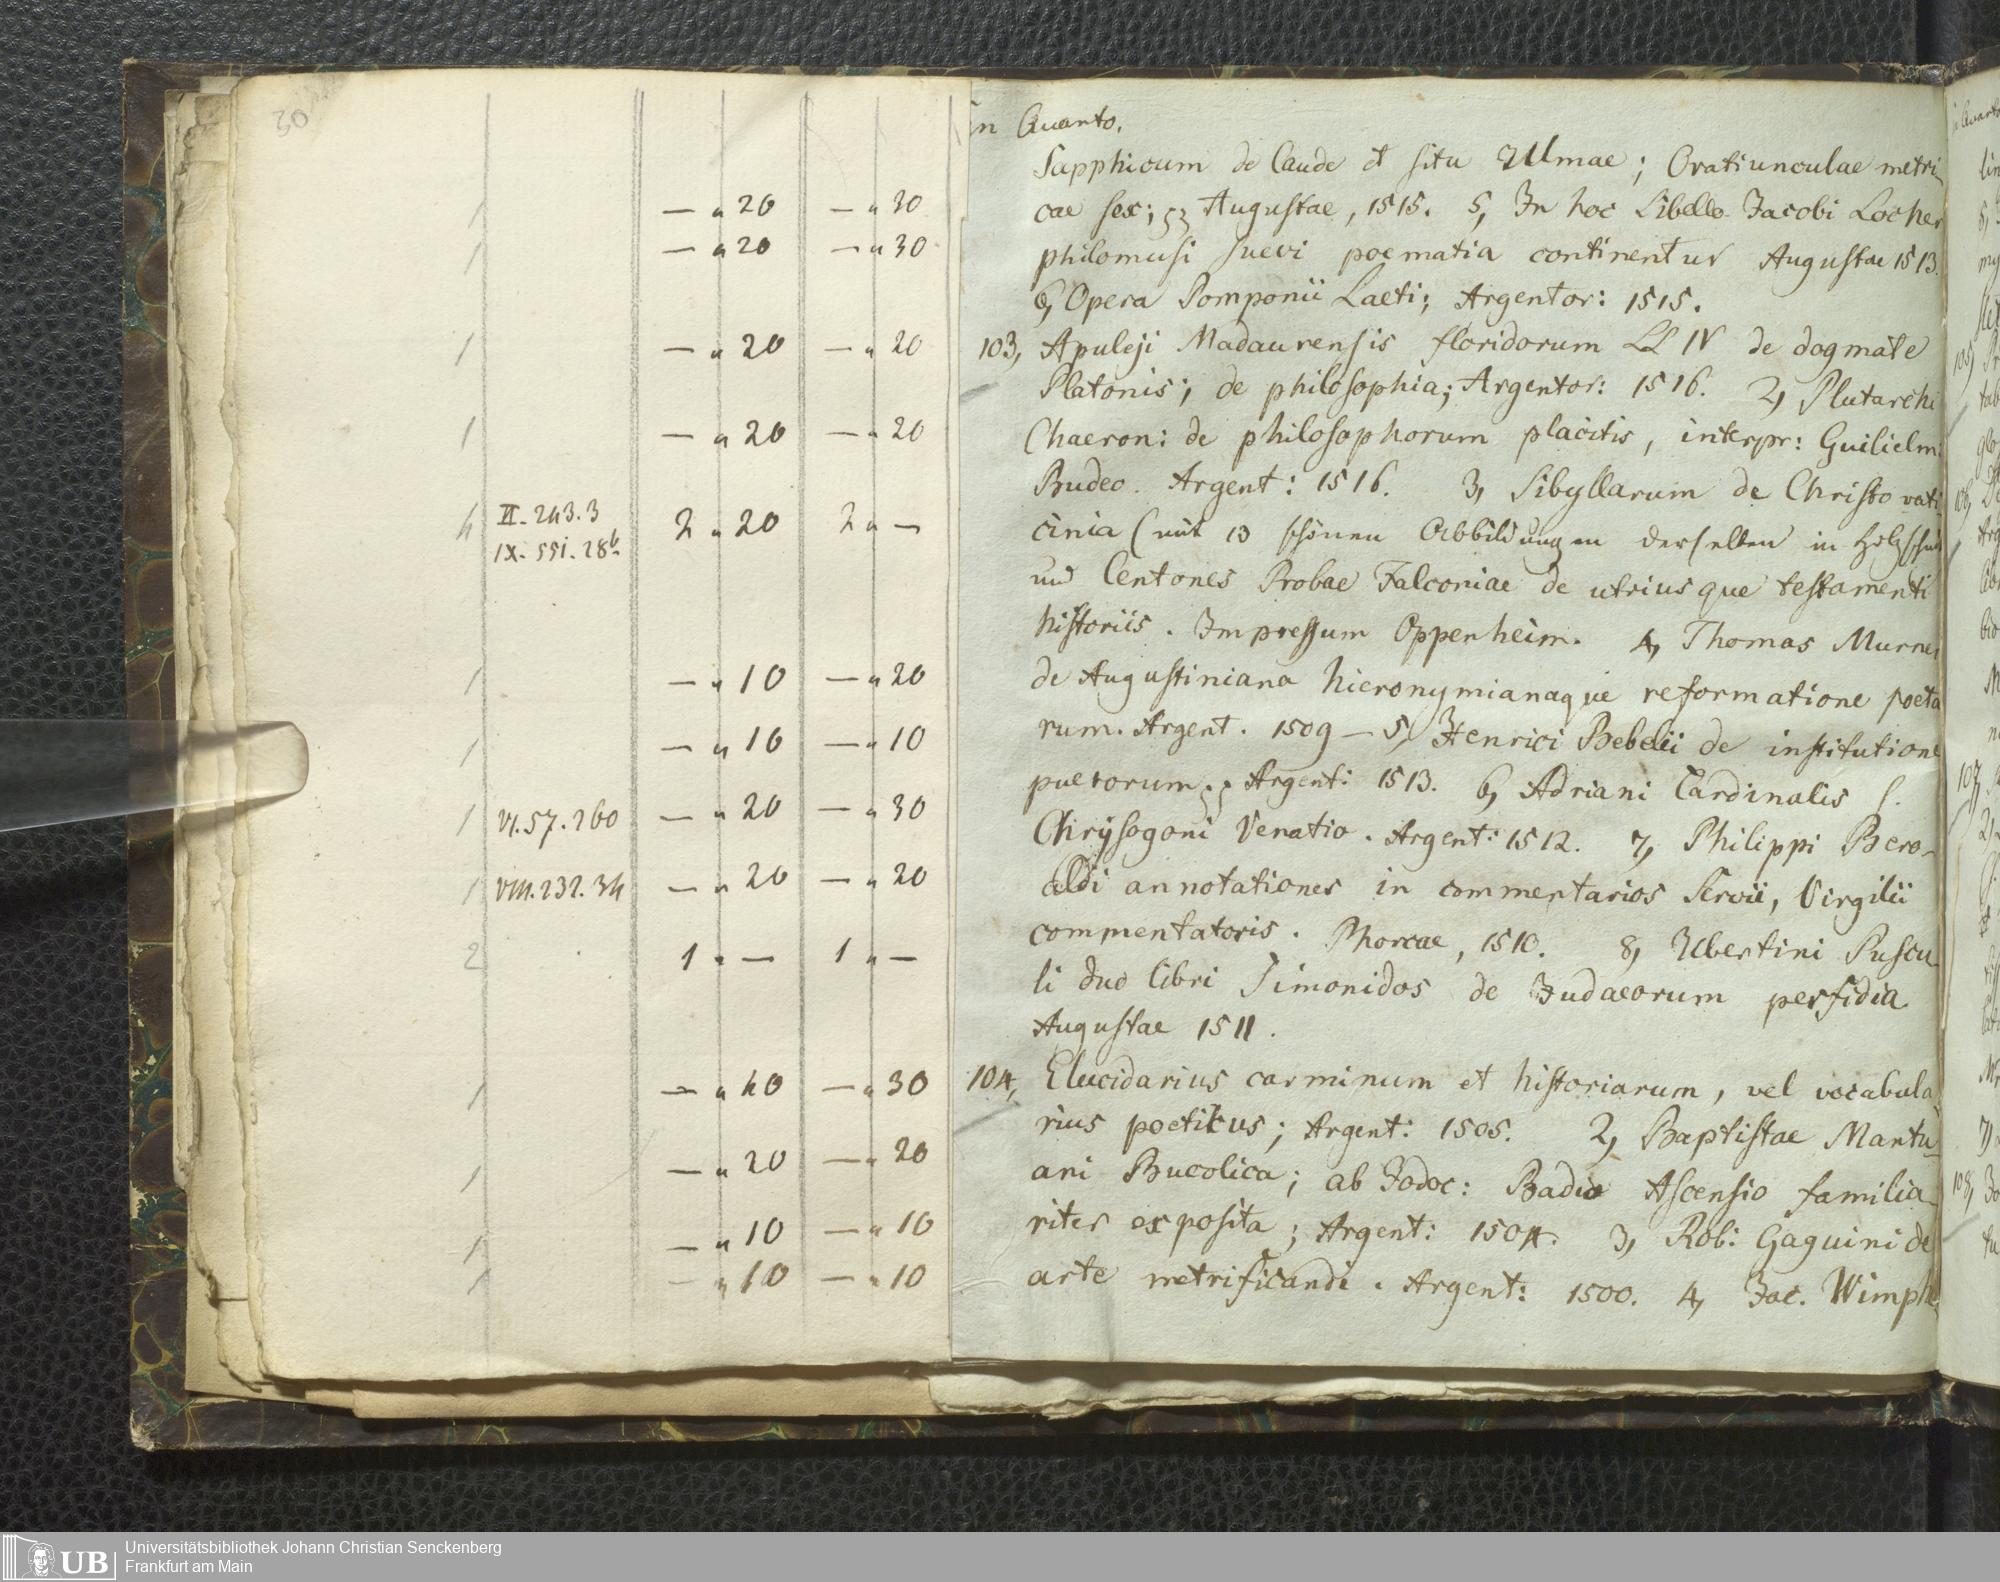 30
1 — " 20 — " 30
1 — " 20 — " 30
1 — " 20 — " 20
1 — " 20 — " 20
4 II. 243. 3 2 " 20 2 " —
IX. 551. 28b
1 — " 10 — " 20
1 — " 10 — " 10
1 VI. 57. 260 — " 20 — " 30
1 VIII. 232. 34 — " 20 — " 20
2 1 " — 1 " —
1 — " 40 — " 30
1 — " 20 — " 20
1 — " 10 — " 10
1 — " 10 — " 10
in Quarto.
Sapphicum de Laude et situ Ulmae; Oratiunculae metri-
cae sex; Augustae, 1515. 5, In hoc Libello Jacobi Locher
philomusi suevi poematia continentur Augustae 1513.
6, Opera Pomponii Laeti; Argentor: 1515.
103, Apuleji Madaurensis floridorum LL IV de dogmate
Platonis; de philosophia; Argentor: 1516. 2, Plutarchi
Chaeron: de philosophorum placitis, interpr: Guilielm:
Budeo. Argent: 1516. 3, Sibyllarum de Christo vati-
cinia (mit 13 schönen Abbildungen derselben in
und Centones Probae Falconiae de utriusque testamenti
historiis. Impressum Oppenheim. 4, Thomas Murner
de Augustiniana hieronymianaque reformatione poeta
rum. Argent. 1509 — 5, Henrici Bebelii de institutione
puerorum; Argent: 1513. 6, Adriani Cardinalis S.
Chrÿsogoni Venatio. Argent: 1512. 7, Philippi Bero-
aldi annotationes in commentarios Servii, Virgilii
commentatoris. Phorcae, 1510. 8, Ubertini Puscu-
li duo libri Simonidos de Judaeorum perfidia
Augustae 1511.
104, Elucidarius carminum et historiarum, vel vocabula-
rius poetikus; Argent: 1505. 2, Baptistae Mantu-
ani Bucolica; ab Jodoc: Badio Ascensio familia-
riter exposita; Argent: 1504. 3, Rob: Gaguini de
arte metrificandi. Argent: 1500. 4, Jac. Wimphe-
in Quarto
105,
107,
108,
UB Universitätsbibliothek Johann Christian Senckenberg
Frankfurt am Main